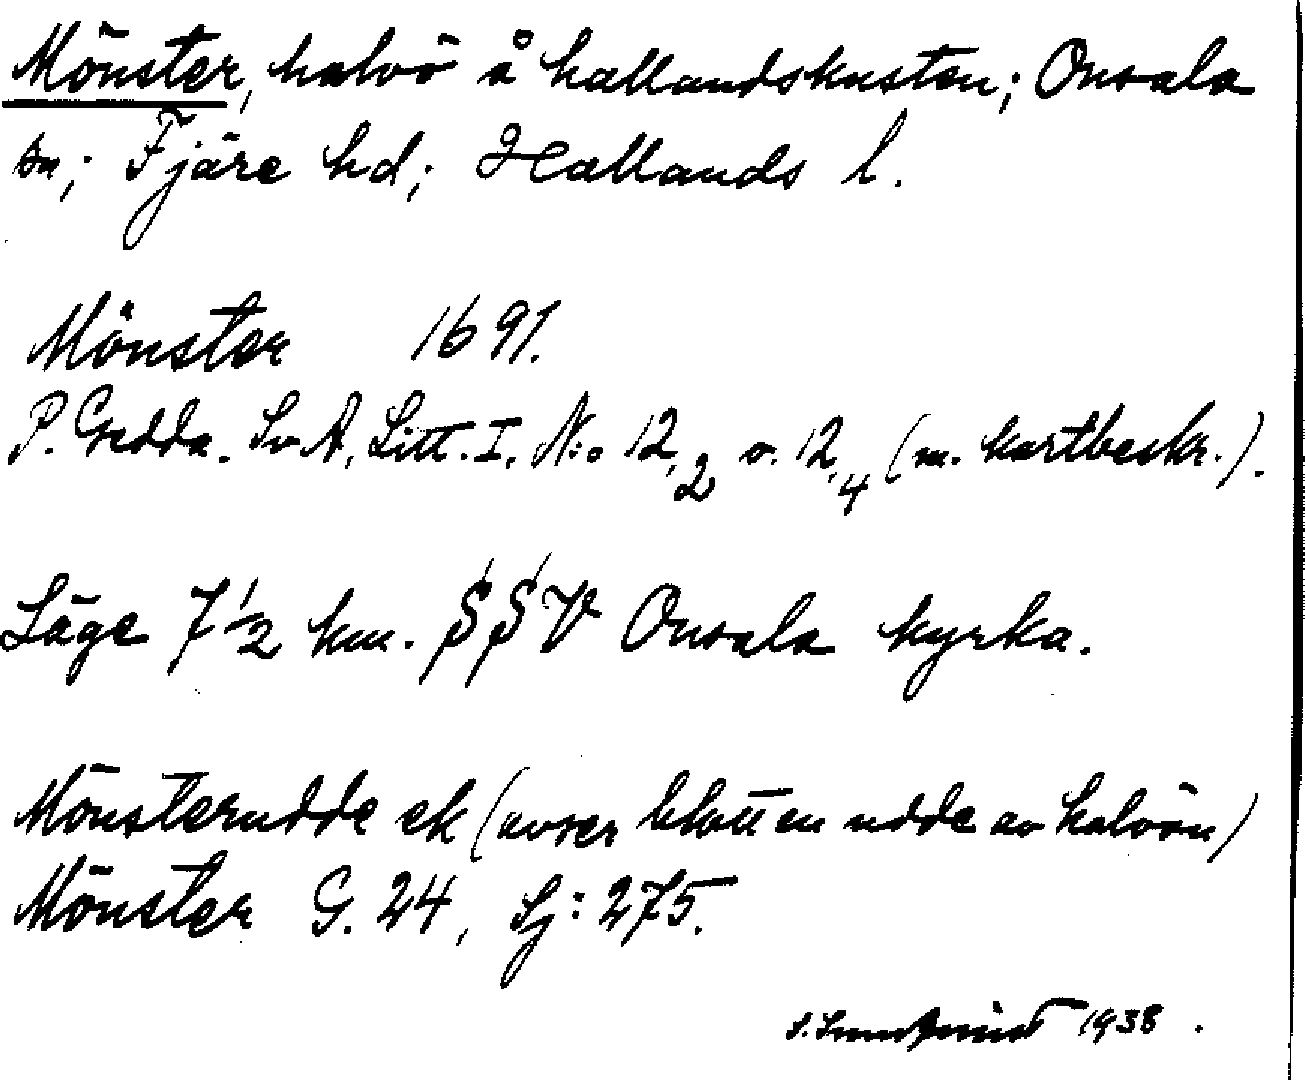 Mönster, halvö å hallandskusten; Onsala
sn; Fjäre hd; Hallands l.
Mönster 1691.
P. Gedda. Sv. A. Litt. I. N:o 12,2 o. 12,4 (m. kartbeskr.).
Läge 7 1/2 km. SSV Onsala kyrka.
Mönsterudde ek (avser blott en udde av halvön)
Mönster G. 24, Sj: 275.
1938.